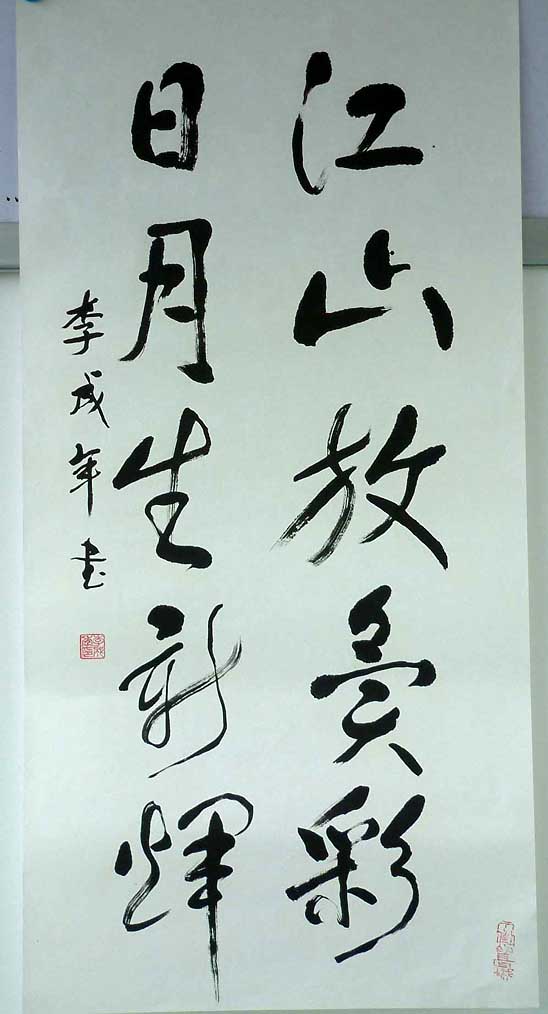 江山放异彩
日月生新辉
李成年书